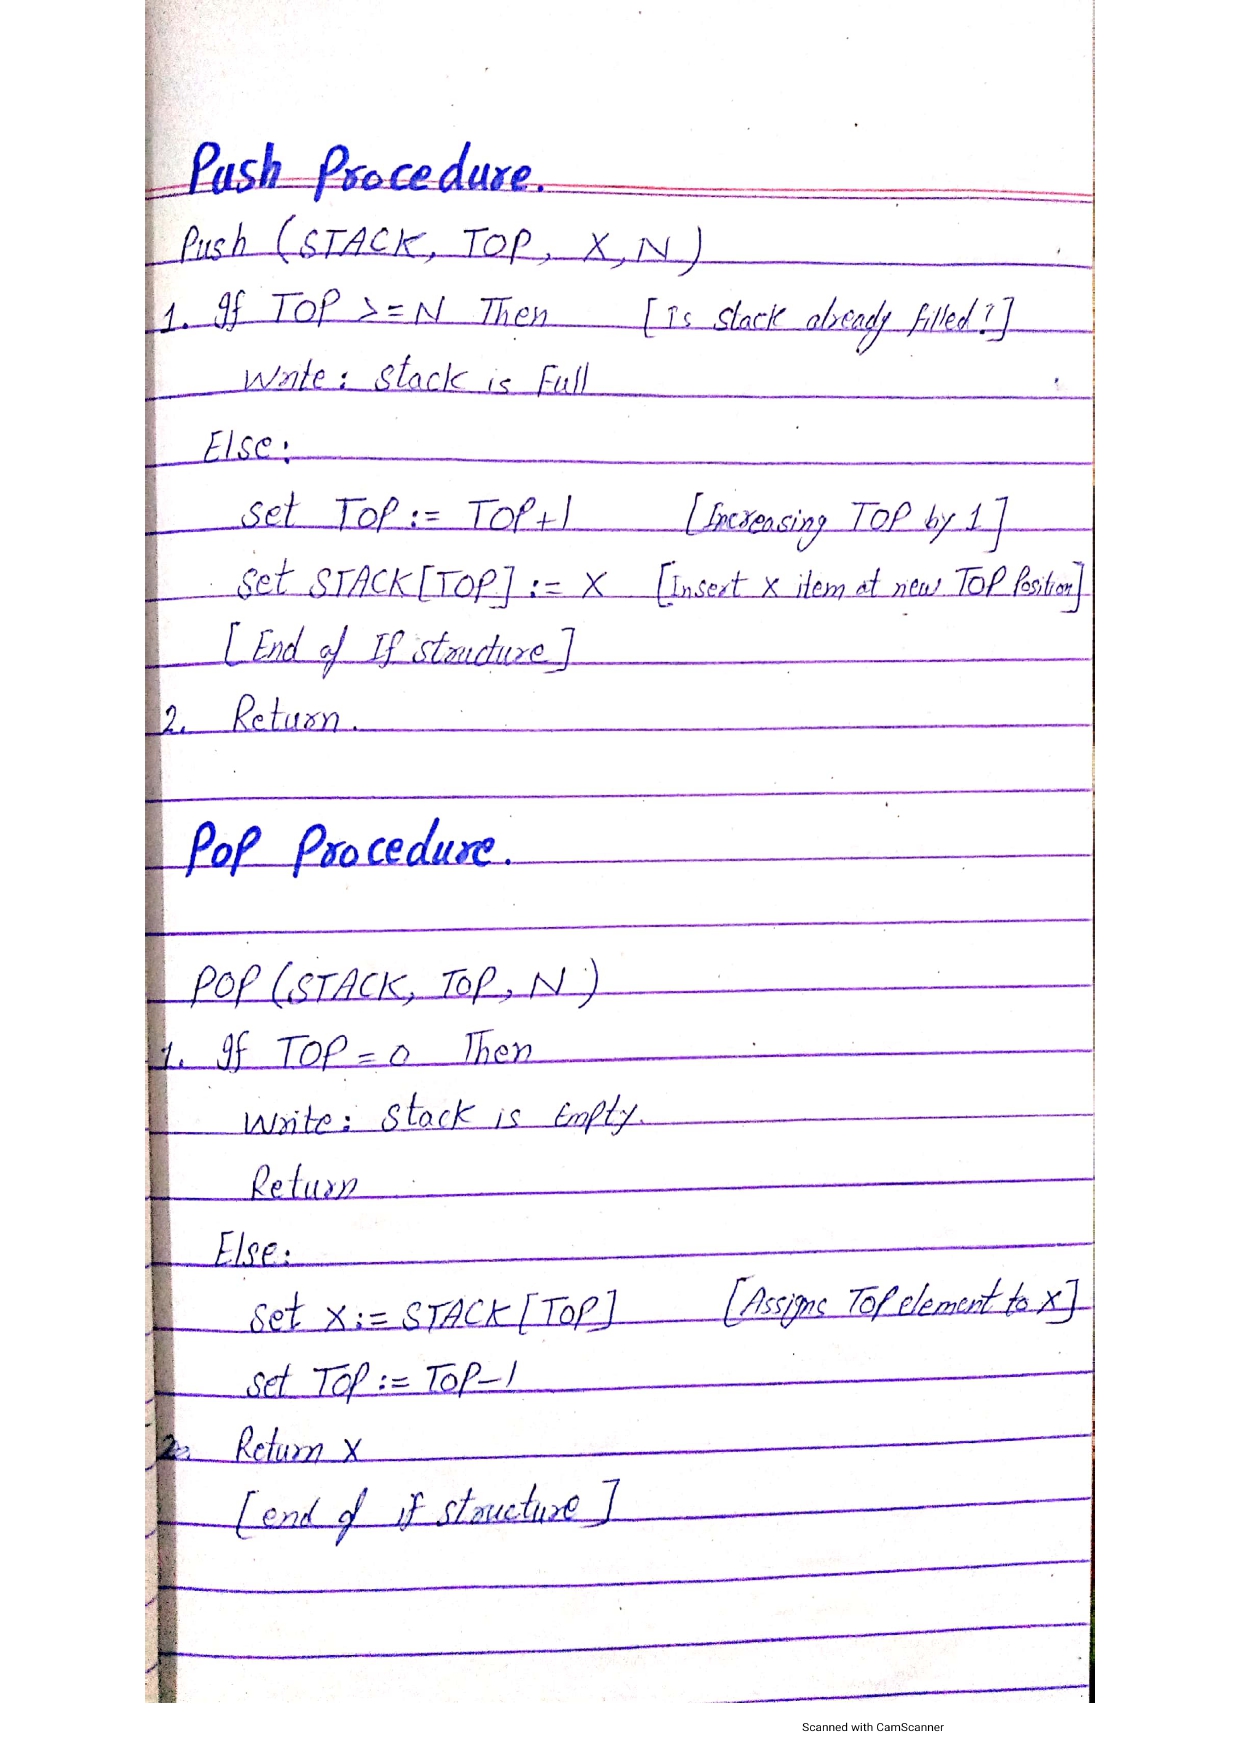 Push Procedure.
Push (STACK, TOP, X, N)
1. If TOP >= N Then [Is stack already filled?]
Write: Stack is Full
Else:
set TOP := TOP+1 [Increasing TOP by 1]
set STACK[TOP] := X [Insert X item at new TOP Position]
[End of If structure]
2. Return.
POP Procedure.
POP (STACK, TOP, N)
1. If TOP = 0 Then
Write: Stack is Empty.
Return
Else:
set X := STACK[TOP] [Assigns TOP element to X]
set TOP := TOP-1
2. Return X
[end of if structure]
Scanned with CamScanner